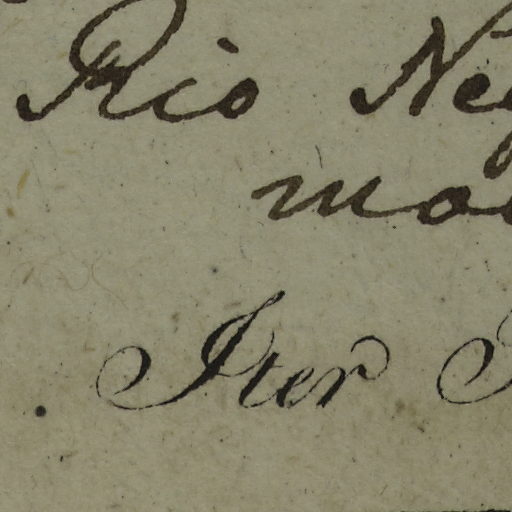 Rio Neg
mo
Iter